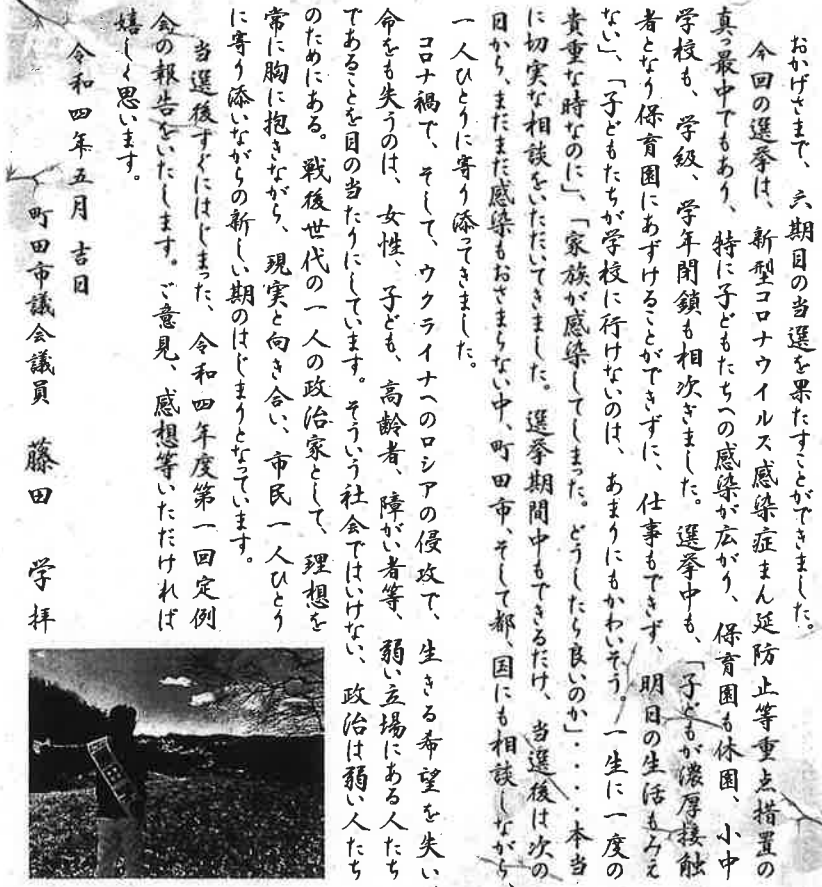 おかげさまで、六期目の当選を果たすことができました。
今回の選挙は、新型コロナウイルス感染症まん延防止等重点措置の
真っ最中でもあり、特に子どもたちへの感染が広がり、保育園も休園、小中
学校も、学級、学年閉鎖も相次ぎました。選挙中も、「子どもが濃厚接触
者となり保育園にあずけることができずに、仕事もできず、明日の生活もみえ
ない」、「子どもたちが学校に行けないのは、あまりにもかわいそう。一生に一度の
貴重な時なのに」、「家族が感染してしまった。どうしたら良いのか」・・・・本当
に切実な相談をいただいてきました。選挙期間中もできるだけ、当選後は次の
日から、まだまだ感染もおさまらない中、町田市、そして都、国にも相談しながら、
一人ひとりに寄り添ってきました。
コロナ禍で、そして、ウクライナへのロシアの侵攻で、生きる希望を失い、
命をも失うのは、女性、子ども、高齢者、障がい者等、弱い立場にある人たち
であることを目の当たりにしています。そういう社会ではいけない、政治は弱い人たち
のためにある。戦後世代の一人の政治家として、理想を
常に胸に抱きながら、現実と向き合い、市民一人ひとり
に寄り添いながらの新しい期のはじまりとなっています。
当選後すぐにはじまった、令和四年度第一回定例
会の報告をいたします。ご意見、感想等いただければ
嬉しく思います。
令和四年五月 吉日
町田市議会議員 藤田 学 拝